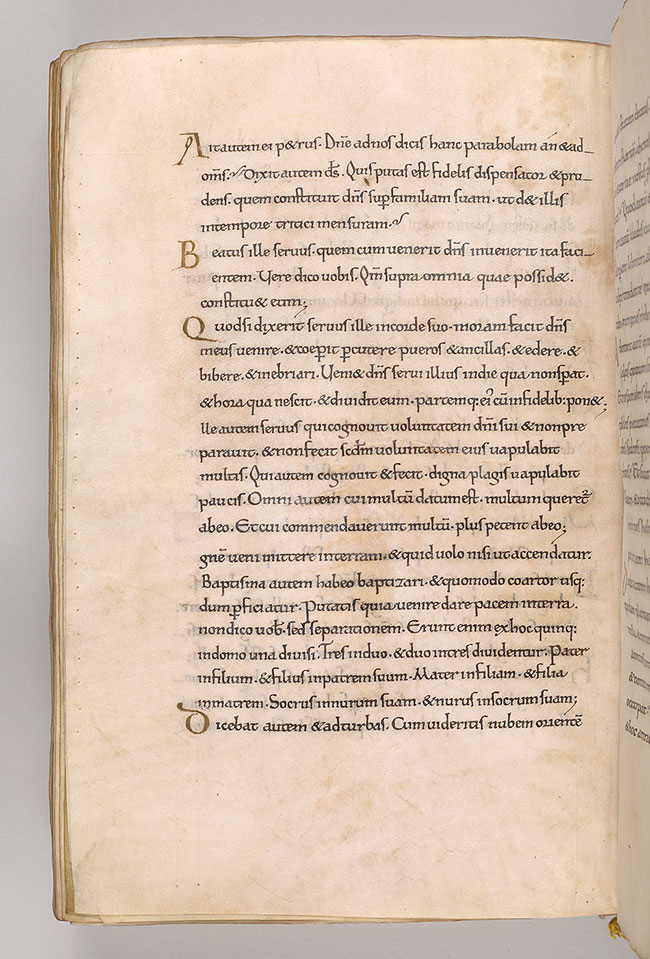 Ait autem ei p&rus. Dñe ad nos dicis hanc parabolam an & ad
om̄s. Dixit autem dn̄s. Quis putas est fidelis dispensator & pru
dens. quem constituit dn̄s sup familiam suam. ut d& illis
in tempore tritici mensuram.
Beatus ille servus. quem cum venerit dn̄s invenerit ita faci
entem. Vere dico vobis. Qm̄ supra omnia quae possid&.
constitu& eum;
Quod si dixerit servus ille in corde suo. moram facit dn̄s
meus venire. & coeperit pcutere pueros & ancillas. & edere. &
bibere. & inebriari. Veni& dn̄s servi illius in die qua non sp̄at.
& hora qua nescit. & dividit eum. partemq: ei' cū infidelib: pon&;
lle autem servus qui cognovit voluntatem dn̄i sui & non pre
paravit. & non fecit scdm̄ voluntatem eius vapulabit
multis. Qui autem cognovit & fecit. digna plagis vapulabit
paucis. Omni autem cui multū datum est. multum queret̄
ab eo. Et cui commendaverunt multū. plus petent ab eo;
gnē veni mittere in terram. & quid volo nisi ut accendatur.
Baptisma autem habeo baptizari. & quomodo coartor usq:
dum pficiatur. Putatis quia veni re dare pacem in terra.
non dico vob̄. sed separationem. Erunt enim ex hoc quinq:
in domo una divisi. Tres in duo. & duo in tres dividentur. Pater
in filium. & filius in patrem suum. Mater in filiam. & filia
in matrem. Socrus in nurum suam. & nurus in socrum suam;
Dicebat autem & ad turbas. Cum videritis nubem orientē